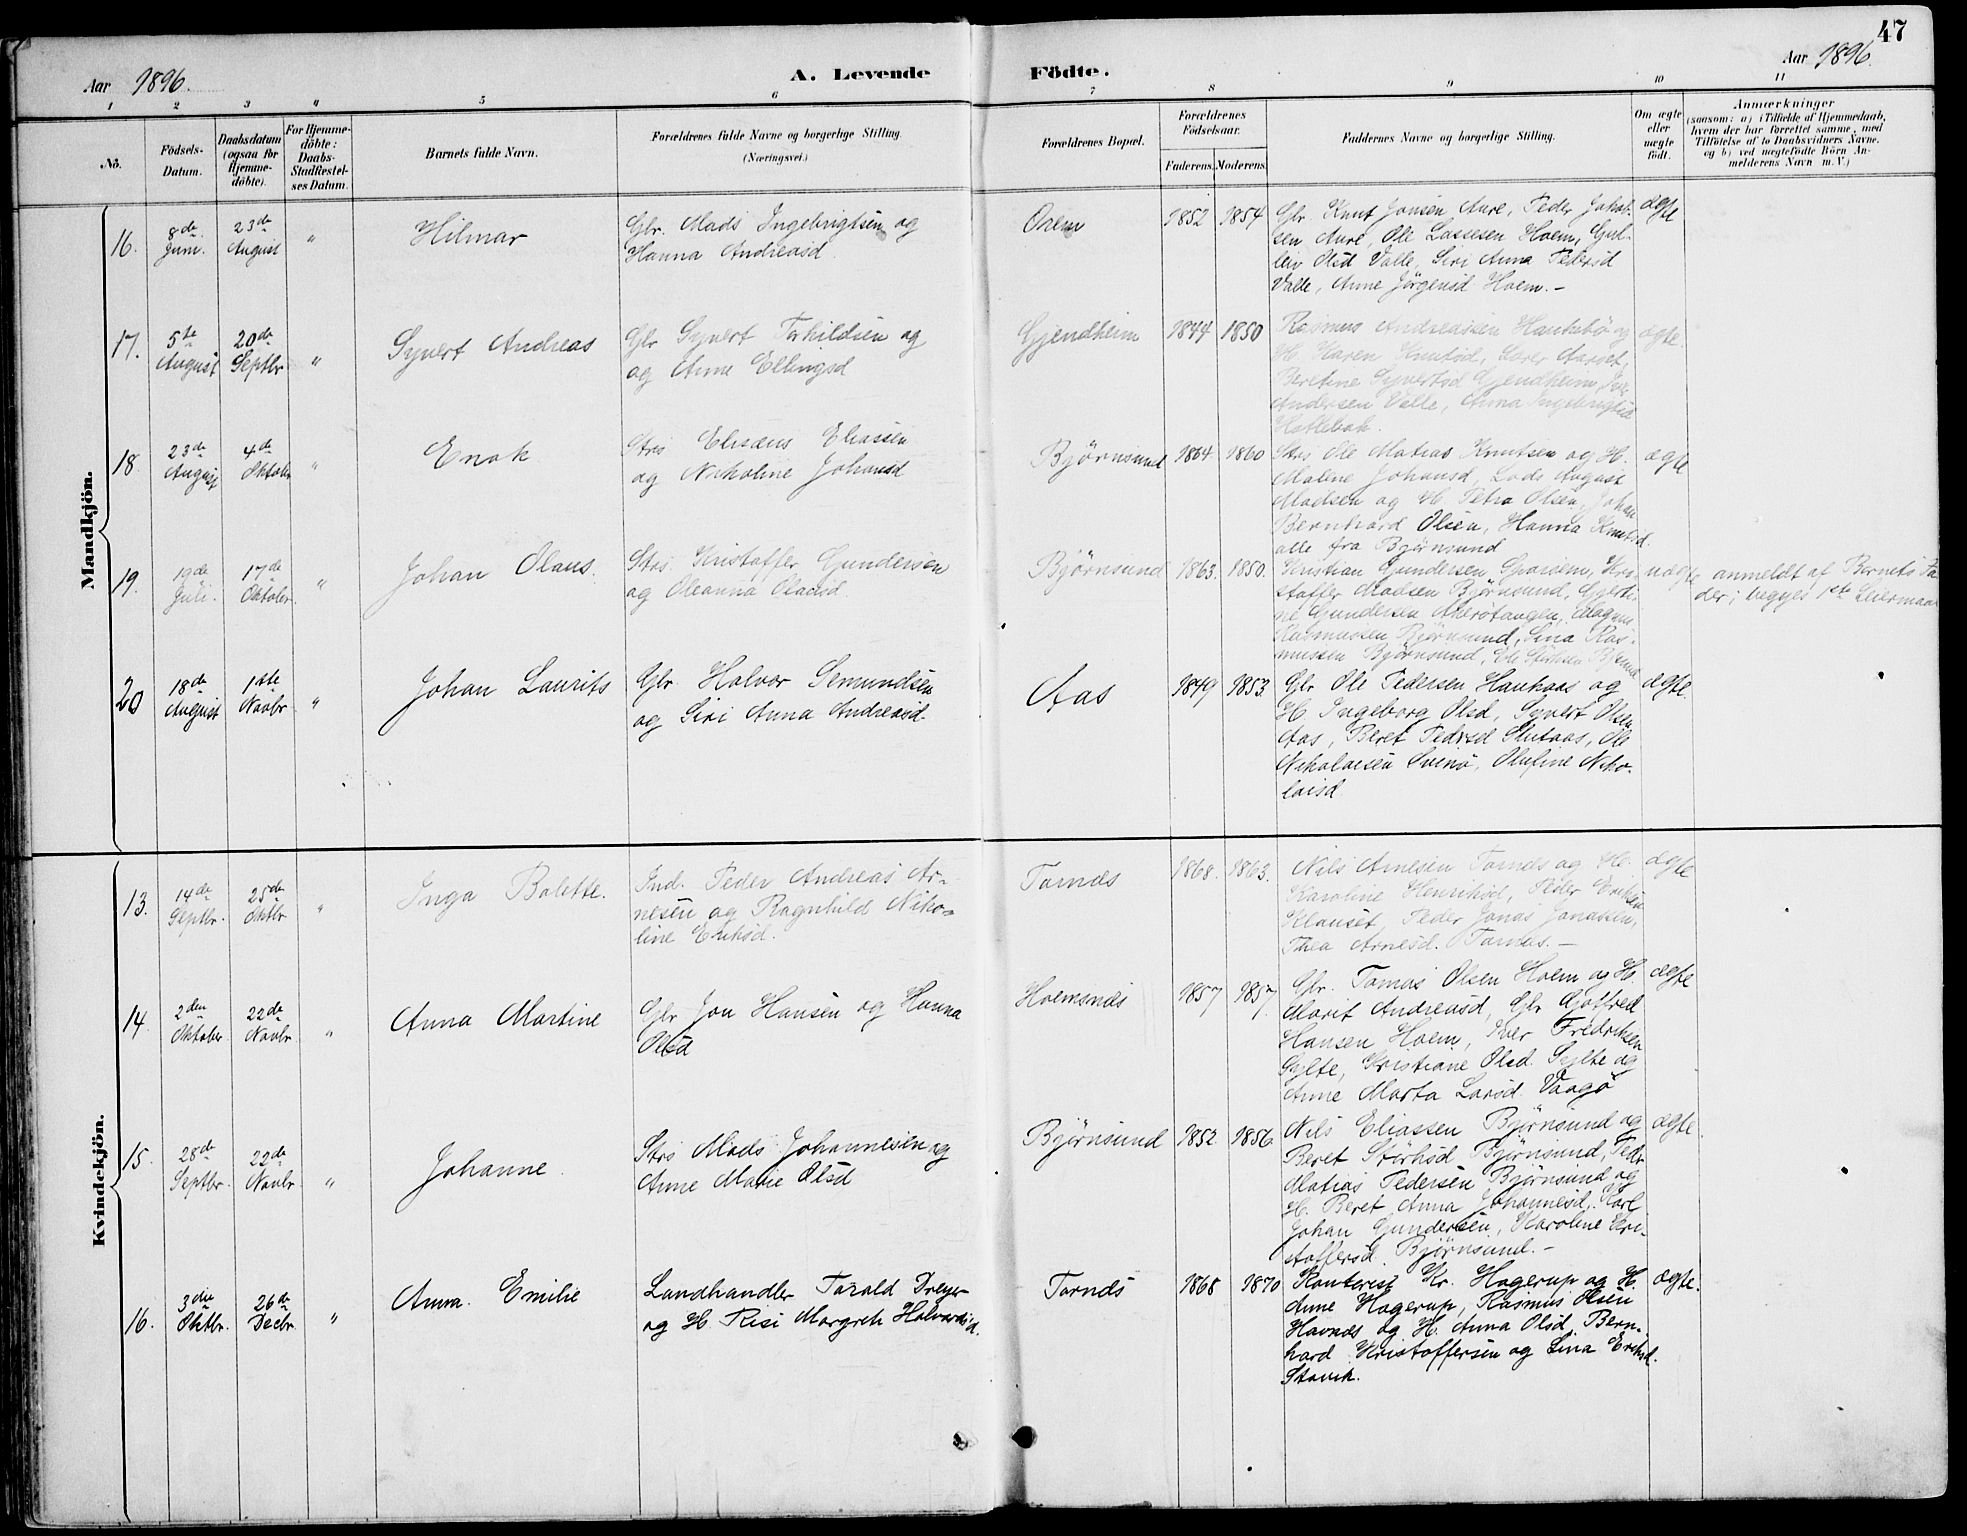 47
Aar 1896.
A. Levende
Fødte.
Aar 1896.
1 2 3 4 5 6 7 8 9 10 11
No.
Fødsels-
Datum.
Daabsdatum
(ogsaa for
Hjemme-
døbte).
For Hjemme-
døbte:
Daabs-
Stadfæstel-
ses Datum.
Barnets fulde Navn.
Forældrenes fulde Navne og borgerlige Stilling.
(Næringsvei.)
Forældrenes Bopæl.
Forældrenes
Fødselsaar.
Faderens. Moderens.
Faddernes Navne og borgerlige Stilling.
Om ægte
eller
uægte
født.
Anmærkninger
(saasom: a) i Tilfælde af Hjemmedaab,
hvem der har forrettet samme, med
Tilføielse af to Daabsvidners Navne.
og b) ved uægtefødte Børn An-
melderens Navn m. V.)
Mandkjøn.
16.
8de
Juni.
23de
August
"
Hilmar
Gbr. Mads Ingebrigtsen og
Hanna Andreasd.
Orem
1852
1854
Gbr. Knut Jonsen Aure, Peder Jakob-
sen Aure, Ole Lassesen Hoem, Gul-
leiv Olsd Valle, Siri Anna Pedersd
Valle, Anne Jørgensd Hoem. -
ægte
17.
5te
August
20de
Septbr.
"
Syvert Andreas
Gbr Syvert Torkildsen og
og Anne Ellingsd
Gjendheim
1844
1850
Rasmus Andreassen Haukebø og
H. Karen Knutsd, Lærer Aaroet,
Beretine Syvertsd Gjendheim, Iver
Andersen Valle, Anna Ingebrigtsd
Hatlebak.
ægte.
18
23de
August
4de
Oktober
"
Enok
Strs Elisæus Eliassen
og Nikoline Johansd
Bjørnsund
1864
1860
Strs Ole Matias Knutsen og H.
Malene Johansd, Lods August
Madsen og H. Petra Olsen, Johan
Bernhard Olsen, Hanna Knutsd.
alle fra Bjørnsund
ægte
19.
19de
Juli.
17de
Oktober.
"
Johan Olaus.
Strs. Kristoffer Gundersen
og Oleanna Olausd.
Bjørnsund
1863.
1850.
Kristian Gundersen, Kri-
stoffer Madsen Bjørnsund, Gjerti-
ne Gundersen Akerøtangen, Magnus
Rasmussen Bjørnsund, Lina Ras-
mussen Bjørnsund, Eli
uægte
anmeldt af Barnets Fa-
der; begges 1ste Leiermaal
20
18de
August
1ste
Novbr
"
Johan Laurits
Gbr Halvor Semundsen
og Siri Anna Andreasd.
Aas
1849
1853.
Gbr. Ole Pedersen Haukaas og
H. Ingeborg Olsd, Syvert Olsen
Aas, Beret Pedersd Slutaas, Ole
Nikolaisen Svinø, Olufine Niko-
laisd
ægte.
Kvindekjøn.
13.
14de
Septbr.
25de
Oktbr
"
Inga Bolette.
Ind. Peder Andreas Ar-
nesen og Ragnhild Niko-
line Eriksd.
Tornes
1868.
1863.
Nils Arnesen Tornes og H.
Karoline Henriksd, Peder Eriksen
Klauset, Peder Jonas Jonassen,
Thea Arnesd. Tornes. -
ægte
14.
2den
Oktober
22de
Novbr
"
Anna Martine
Gbr Jon Hansen og Hanna
Olsd
Hoemsnes
1857
1857.
Gbr. Tomas Olsen Hoem og H.
Marit Andreasd, Gbr Gotfred
Hansen Hoem, Iver Fredriksen
Sylte, Kristiane Olsd. Sylte og
Anne Marta Larsd. Vaagø
ægte
15.
28de
Septbr.
22de
Novbr
"
Johanne
Strs Mads Johannesen og
Anne Marie Olsd
Bjørnsund
1852
1856.
Nils Eliassen Bjørnsund og
Beret Størksd Bjørnsund, Peder
Matias Pedersen Bjørnsund og
H. Beret Anna Johannesd, Karl
Johan Gundersen, Karoline Kri-
stoffersd. Bjørnsund. -
ægte.
16.
3die
Oktbr.
26de
Decbr
"
Anna Emilie
Landhandler Torald Dreyer
og H. Risi Margrete Halvorsd.
Tornes
1868
1870
Kontorist Kr. Hagerup og H.
Anne Hagerup, Rasmus Olsen
Havnes og H. Anna Olsd, Bern-
hard Kristoffersen og Lina Eriksd.
Stavik.
ægte.